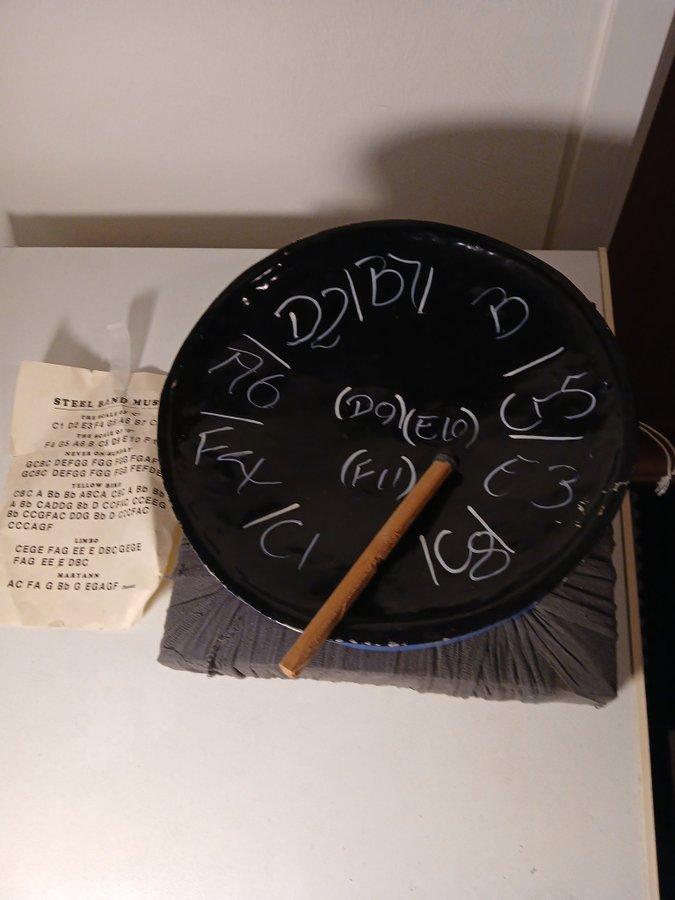 STEEL BAND MUS
THE SCALE OF "C"
C1 D2 E3 F4 G5 A6 B7 C
THE SCALE OF "F"
F4 G5 A6 B C8 D9 E10 F
NEVER ON SUNDAY
GCBC DEFGG FGG FGG FGAF
GCBC DEFGG FGG FGG FEFDE
YELLOW BIRD
CBC A Bb Bb ABCA CBC A Bb Bb
A Bb CADDG Bb D CCFAC CCEEG
Bb CCGFAC DDG Bb D CCFAC
CCCAGF
LIMBO
CEGE FAG EE E DBCGEGE
FAG EE E DBC
MARYANN
AC FA G Bb G EGAGF
D2 B7 B
A6 G5
(D9) (E10)
F4 (F11) E3
C1 C8